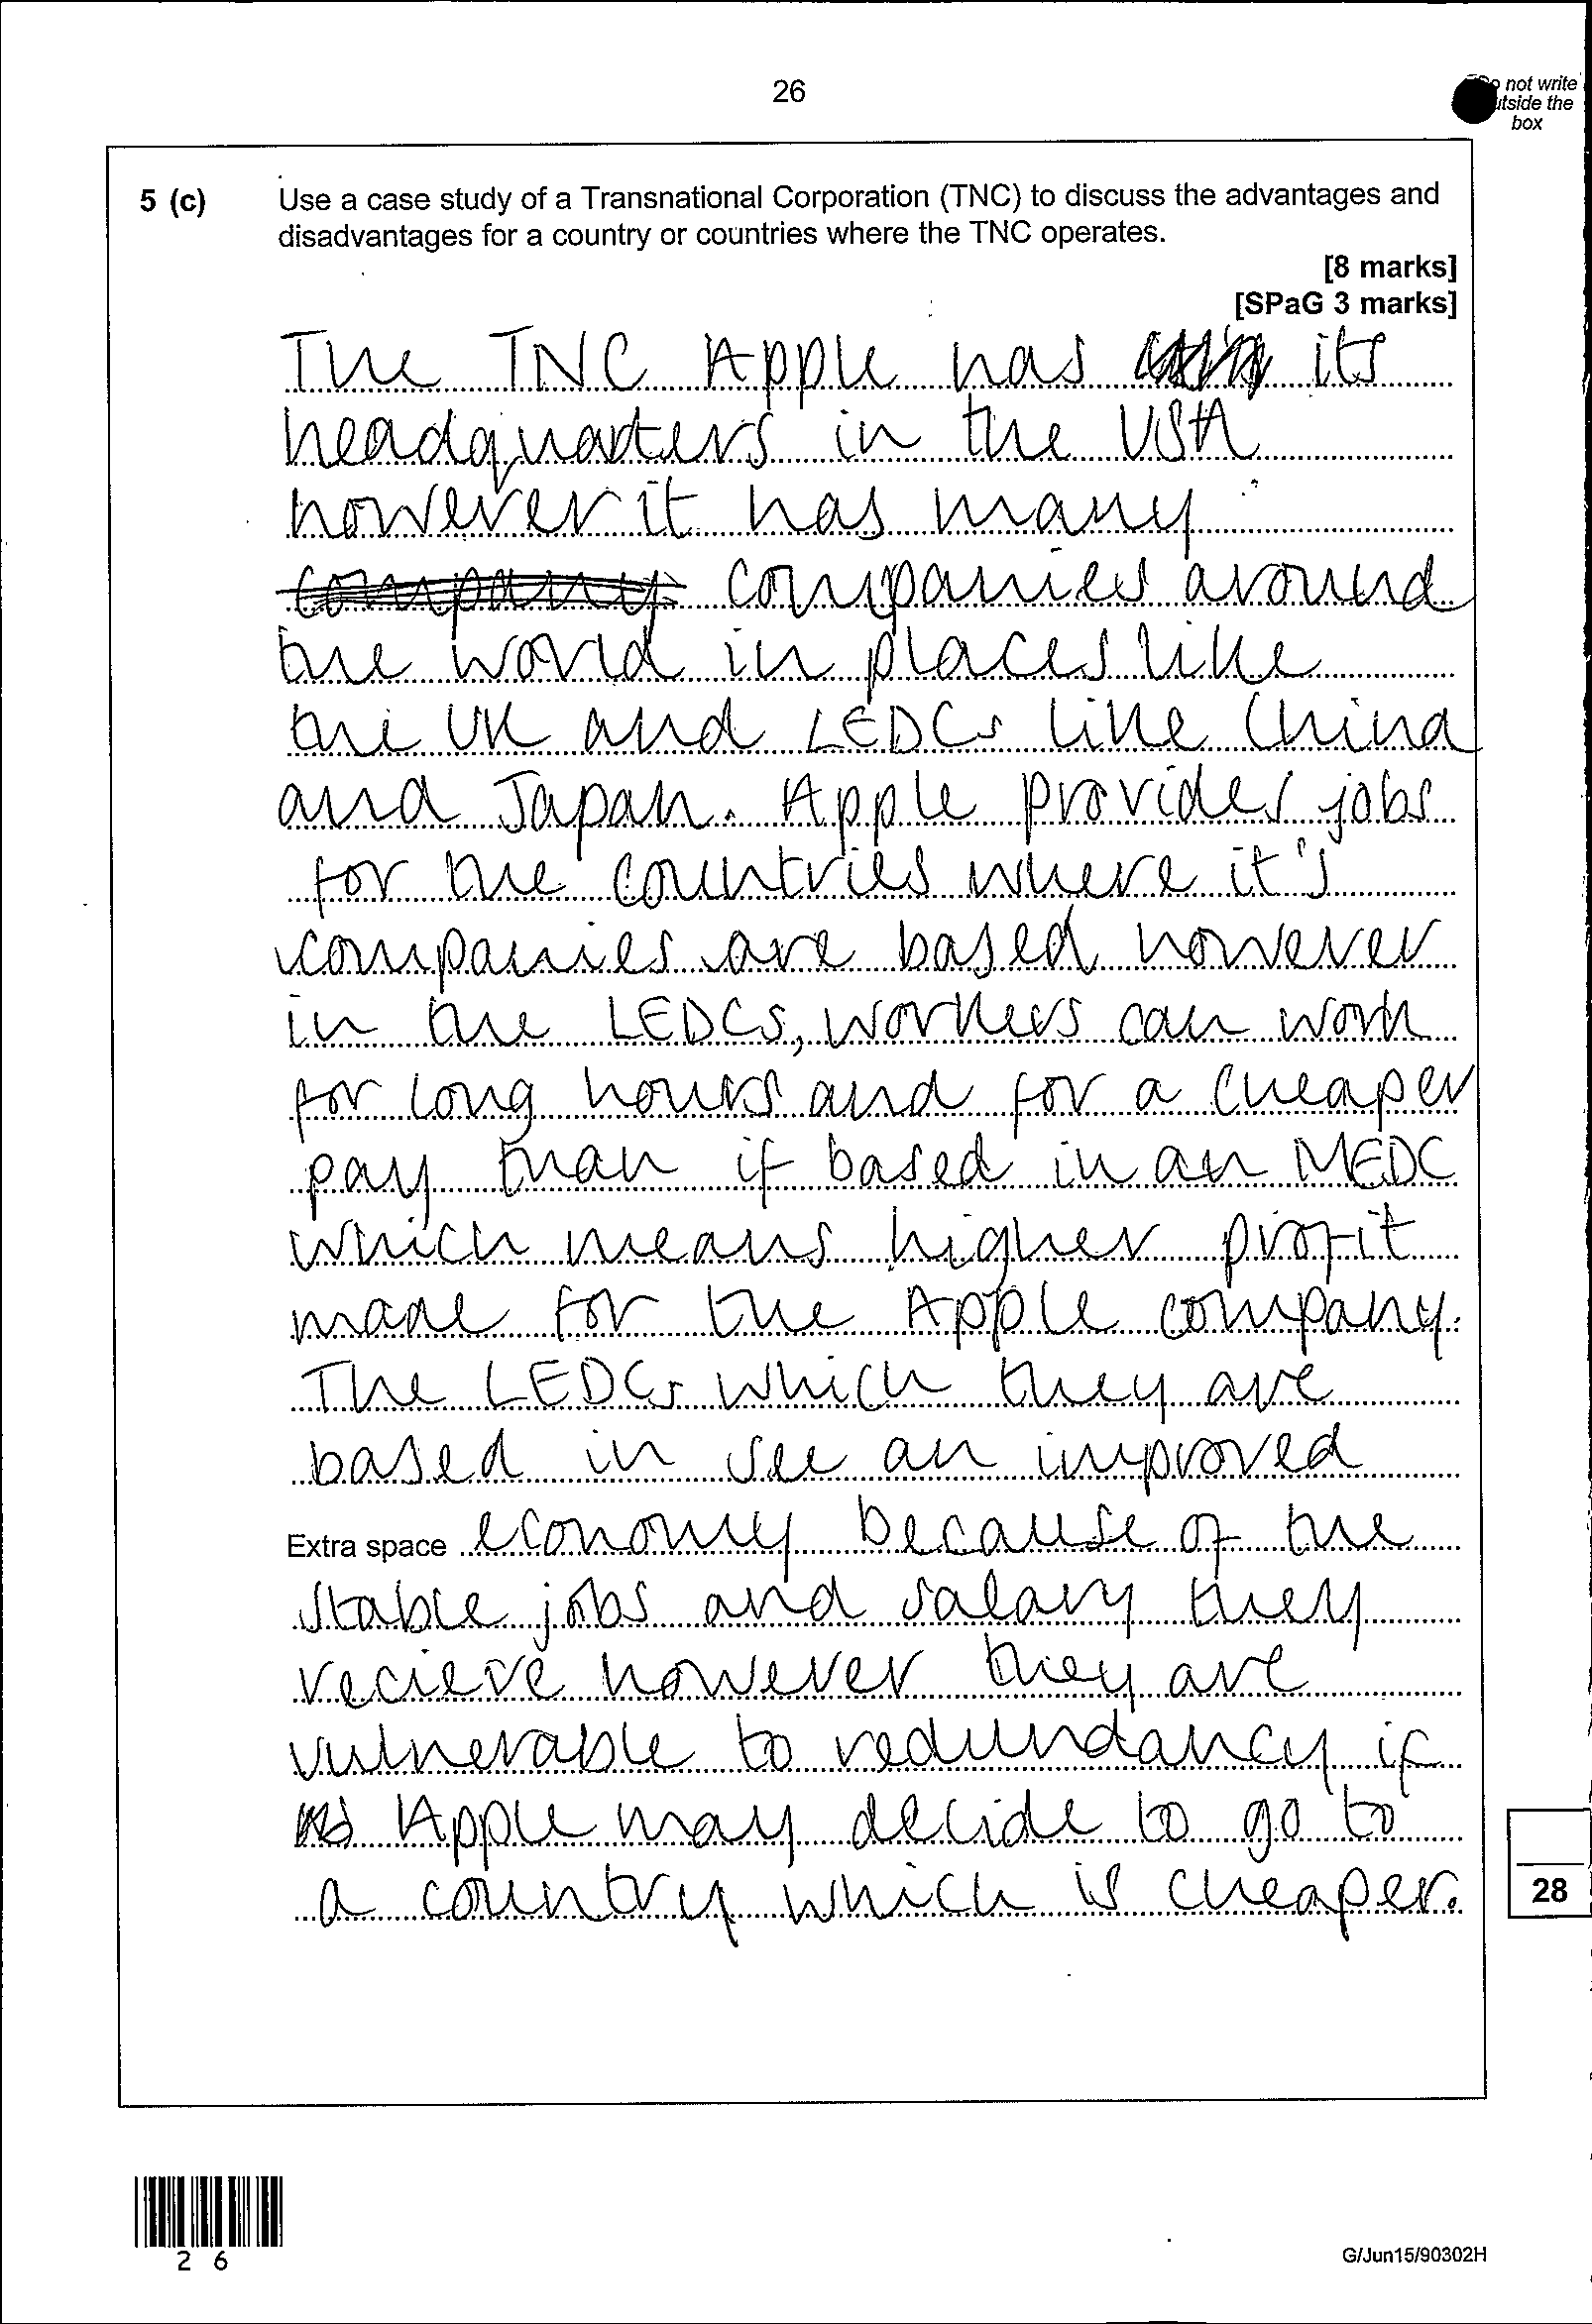 26
Do not write
outside the
box
5 (c) Use a case study of a Transnational Corporation (TNC) to discuss the advantages and
disadvantages for a country or countries where the TNC operates.
[8 marks]
[SPaG 3 marks]
The TNC Apple has its
headquarters in the USA
however it has many
company companies around
the world in places like
the UK and LEDCs like China
and Japan. Apple provides jobs
for the countries where it's
companies are based however
in the LEDCs, workers can work
for long hours and for a cheaper
pay than if based in an MEDC
which means higher profit
made for the Apple company.
The LEDCs which they are
based in see an improved
Extra space economy because of the
stable jobs and salary they
recieve however they are
vulnerable to redundancy if
Apple may decide to go to
a country which is cheaper.
28
2 6
G/Jun15/90302H